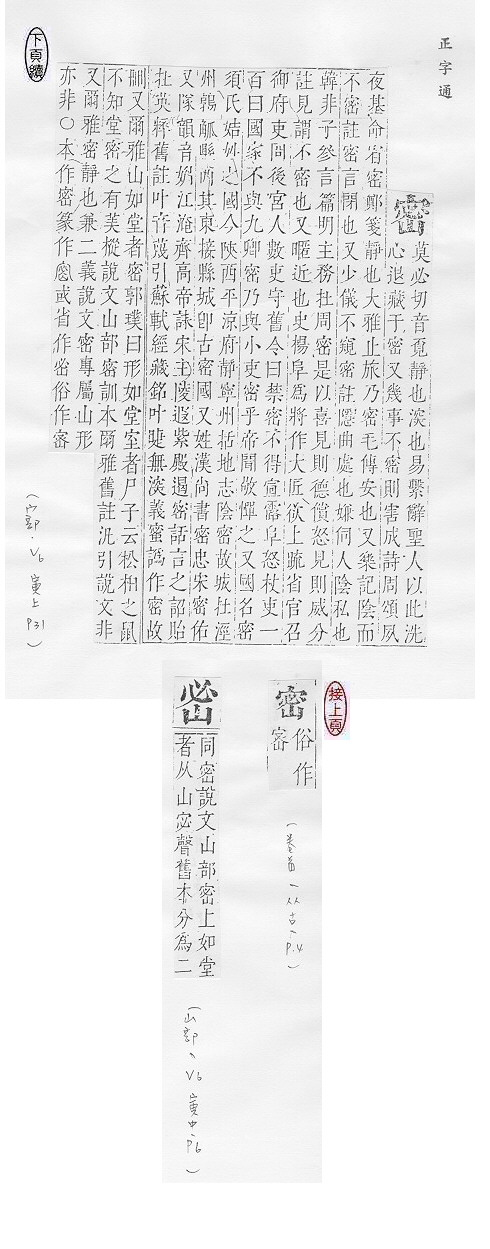 正字通
密
莫必切音覓靜也深也易繫辭聖人以此洗
心退藏于密又幾事不密則害成詩周頌夙
夜基命宥密鄭箋靜也大雅止旅乃密毛傳安也又樂記陰而
不密註密言閉也又少儀不窺密註隱曲處也嫌伺人陰私也
韓非子參言篇明主務在周密是以喜見則德償怒見則威分
註見謂不密也又暱近也史楊阜為將作大匠欲上疏省官召
御府吏問後宮人數吏守舊令曰禁密不得宣露阜怒杖吏一
百曰國家不與九卿密乃與小吏密乎帝聞敬憚之又國名密
須氏姞姓之國今陝西平涼府靜寧州括地志陰密故城在涇
州鶉觚縣西其東接縣城即古密國又姓漢尚書密忠宋密佑
又隊韻音妎江淹齊高帝誄宋主陵遐紫殿遏密話言之詔貽
在英輧舊註叶音蔑引蘇軾經藏銘叶踕無深義蜜譌作密故
刪又爾雅山如堂者密郭璞曰形如堂室者尸子云松柏之鼠
不知堂密之有美樅說文山部密訓本爾雅舊註汎引說文非
又爾雅密靜也兼二義說文密專屬山形
亦非○本作密篆作密或省作密俗作宻
下頁續
(宀部、V6 寅上 P31)
接上頁
密
俗作
宻
(卷首、从古、P.4)
峚
同密說文山部密上如堂
者从山宓聲舊本分為二
(山部、V6 寅中、P6)